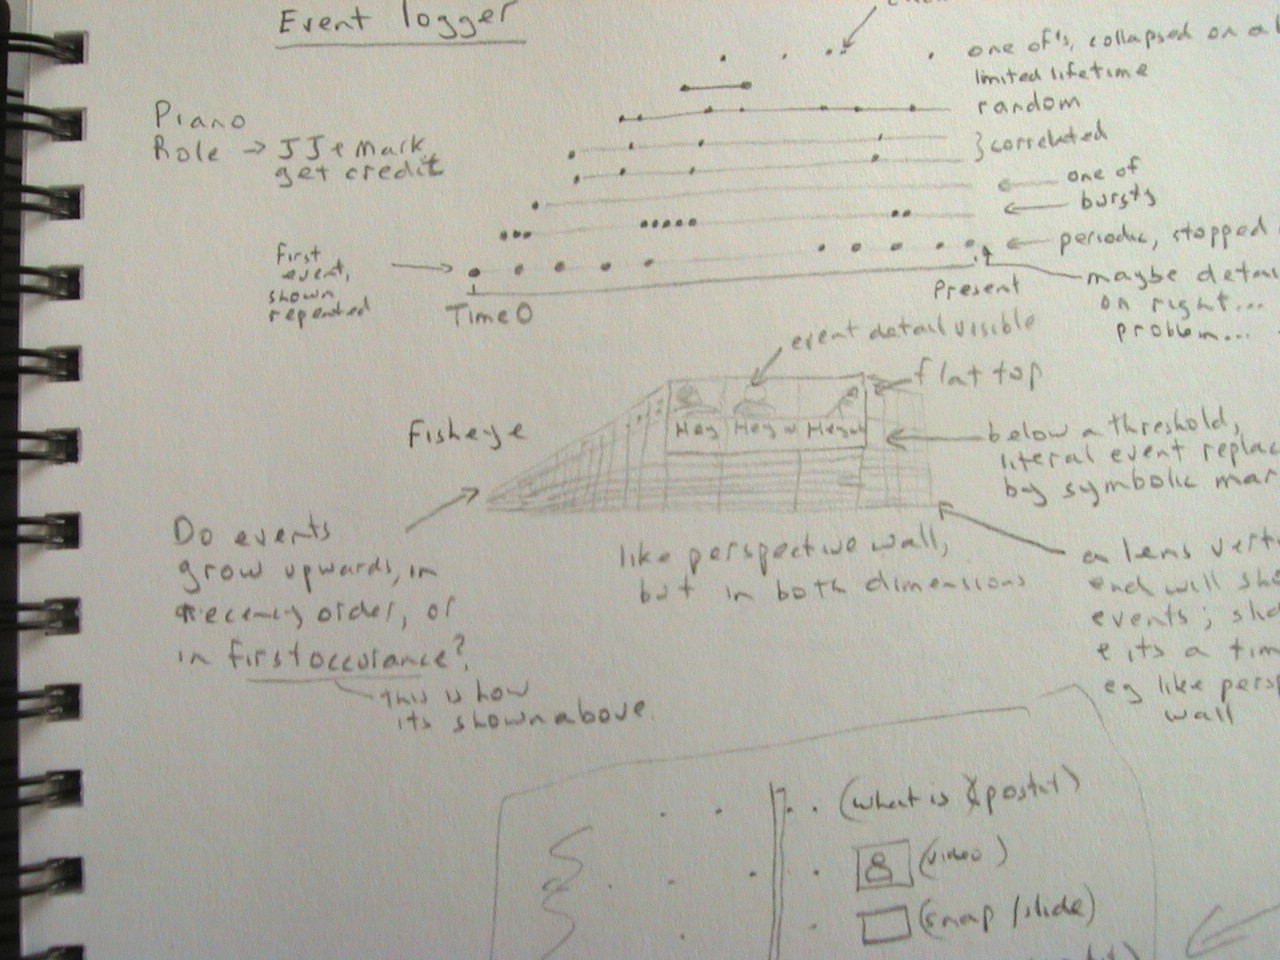 Event logger
one of's, collapsed on a
limited lifetime
random
Piano
Role → JJ + Mark
get credit
} correlated
one of
bursts
periodic, stopped
First
event,
shown
repeated
Time 0
Present
maybe detai
on right...
problem...
event detail visible
flat top
Fisheye
Hey Hey Hey
below a threshold,
literal event replac
by symbolic mar
Do events
grow upwards, in
recency order, or
in first occurance?
this is how
its shown above
like perspective wall,
but in both dimensions
a lens vert
end will sho
events; slid
e its a tim
eg like persp
wall
(what is postit)
(video)
(snap/slide)